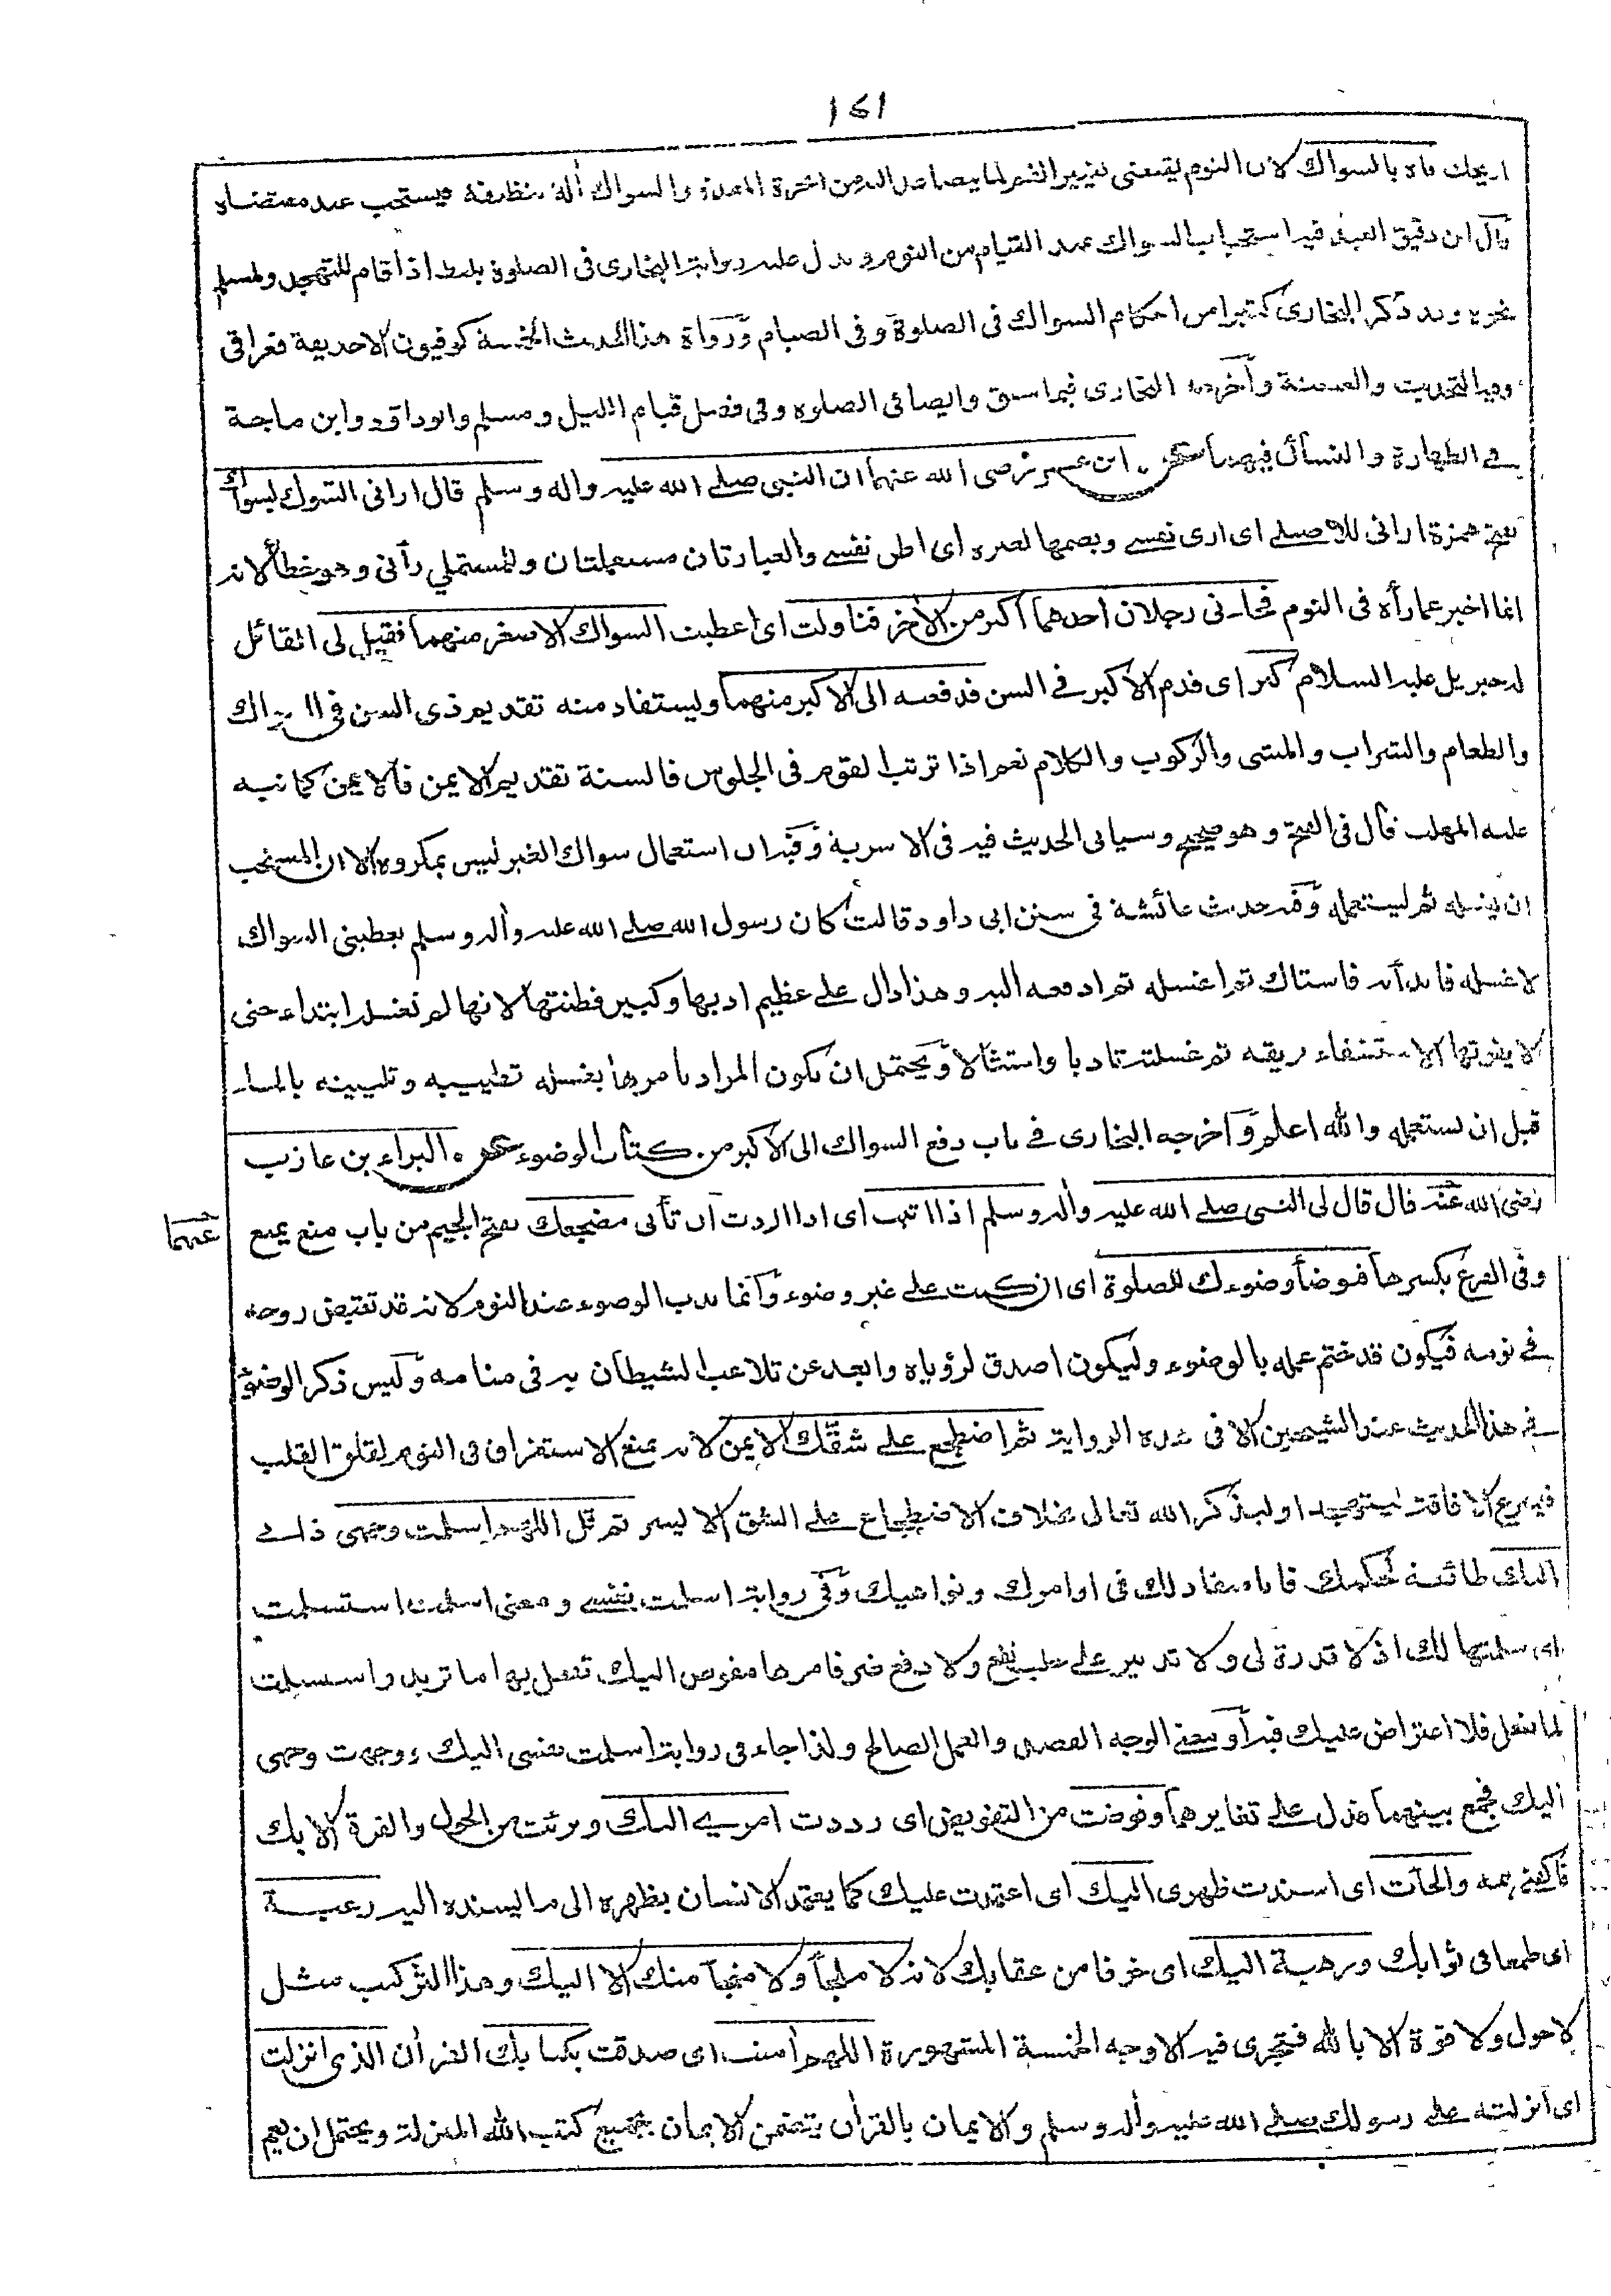 ١٤١
او يحك فاه بالسواك لان النوم يقتضى تغيير الفم لما يتصاعد اليه من ابخرة المعدة والسواك آلة تنظيفه فيستحب عند مقتضاه
قال ابن دقيق العيد فيه استحباب السواك عند القيام من النوم ويدل عليه رواية البخارى فى الصلوة بلفظ اذا قام للتهجد ولمسلم
نحوه وقد ذكر البخارى كثيرا من احكام السواك فى الصلوة وفى الصيام ورواة هذا الحديث الخمسة كوفيون الا حذيفة فعراقى
وفيه التحديث والعنعنة وأخرجه البخارى فيما سبق وايضا فى الصلوة وفى فضل قيام الليل ومسلم وابو داؤد وابن ماجة
فى الطهارة والنسائى فيهما عن ابن عمر رضى الله عنهما ان النبى صلے الله عليه واله وسلم قال ارانى اتسوك بسواك
بفتح همزة ارانى للاصيلے اى ارى نفسے وبضمها لغيره اى اظن نفسے والعبارتان مستعملتان وللمستملي رآنى وهو خطألانه
انما اخبر عما رأه فى النوم فجاءنى رجلان احدهما اكبر من الأخر فناولت اى اعطيت السواك الاصغر منهما فقيل لى القائل
له جبريل عليه السلام كبر اى قدم الأكبر فے السن فدفعته الى الاكبر منهما ويستفاد منه تقديم ذى السن فى السواك
والطعام والشراب والمشى والركوب والكلام نعم اذا ترتب القوم فى الجلوس فالسنة تقديم الايمن فالايمن كما نبه
عليه المهلب قال فى الفتح وهو صحيح وسياتى الحديث فيه فى الاشربة وفيه ان استعمال سواك الغير ليس بمكروه الا ان المستحب
ان يغسله ثم ليستعمله وفيه حديث عائشة فى سنن ابى داود قالت كان رسول الله صلے الله عليه وأله وسلم يعطينى السواك
لاغسله فابدأ به فاستاك ثم اغسله ثم ادفعه اليه وهذا دال علے عظيم ادبها وكبير فطنتها لانها لم تغسله ابتداء حتى
لا يفوتها الاستشفاء بريقه ثم غسلته تادبا وامتثالا ويحتمل ان يكون المراد بامرها بغسله تطييبه وتليينه بالماء
قبل ان يستعمله والله اعلم وأخرجه البخارى فے باب دفع السواك الى الأكبر من كتاب الوضوء عن البراء بن عازب
رضى الله عنه قال قال لى النبى صلے الله عليه وأله وسلم اذا اتيت اى اذا اردت ان تأتى مضجعك بفتح الجيم من باب منع يمنع
عنهما
وفى الفرع بكسرها فتوضأ وضوءك للصلوة اى ان كنت علے غير وضوء وانما ندب الوضوء عند النوم لانه قد تقبض روحه
فے نومه فيكون قد ختم عمله بالوضوء وليكون اصدق لرؤياه وابعد عن تلاعب الشيطان به فى منامه وليس ذكر الوضوء
فے هذا الحديث عند الشيخين الا فى هذه الرواية ثم اضطجع علے شقك الايمن لانه يمنع الاستغراق فى النوم لقلق القلب
فيسرع الافاقة ليتهجد او ليذكر الله تعالى بخلاف الاضطجاع علے الشق الايسر ثم قل اللهم اسلمت وجهى ذاتے
اليك طائعة لحكمك فانا منقاد لك فى اوامرك ونواهيك وفى رواية اسلمت نفسے ومعنى اسلمت استسلمت
اى سلمتها لك اذ لا قدرة لى ولا تدبير علے جلب نفع ولا دفع ضر فامرها مفوض اليك تفعل بها ما تريد واستسلمت
لما تفعل فلا اعتراض عليك فيه او بمعنے الوجه القصد والعمل الصالح ولذا جاء فى رواية اسلمت نفسى اليك ووجهت وجهى
اليك فجمع بينهما فدل علے تغايرهما وفوضت من التفويض اى رددت امرے اليك وبرئت من الحول والقوة الا بك
فاكفنے همه والجأت اى اسندت ظهرى اليك اى اعتمدت عليك كما يعتمد الانسان بظهره الى ما يسنده اليه رغبة
اى طمعا فى ثوابك ورهبة اليك اى خوفا من عقابك لانه لا ملجأ ولا منجأ منك الا اليك وهذا التركيب مثل
لا حول ولا قوة الا بالله فتجرى فيه الاوجه الخمسة المشهورة اللهم أمنت اى صدقت بكتابك القرأن الذى انزلت
اى انزلته علے رسولك صلے الله عليه وأله وسلم والايمان بالقرأن يتضمن الايمان بجميع كتب الله المنزلة ويحتمل ان يعم